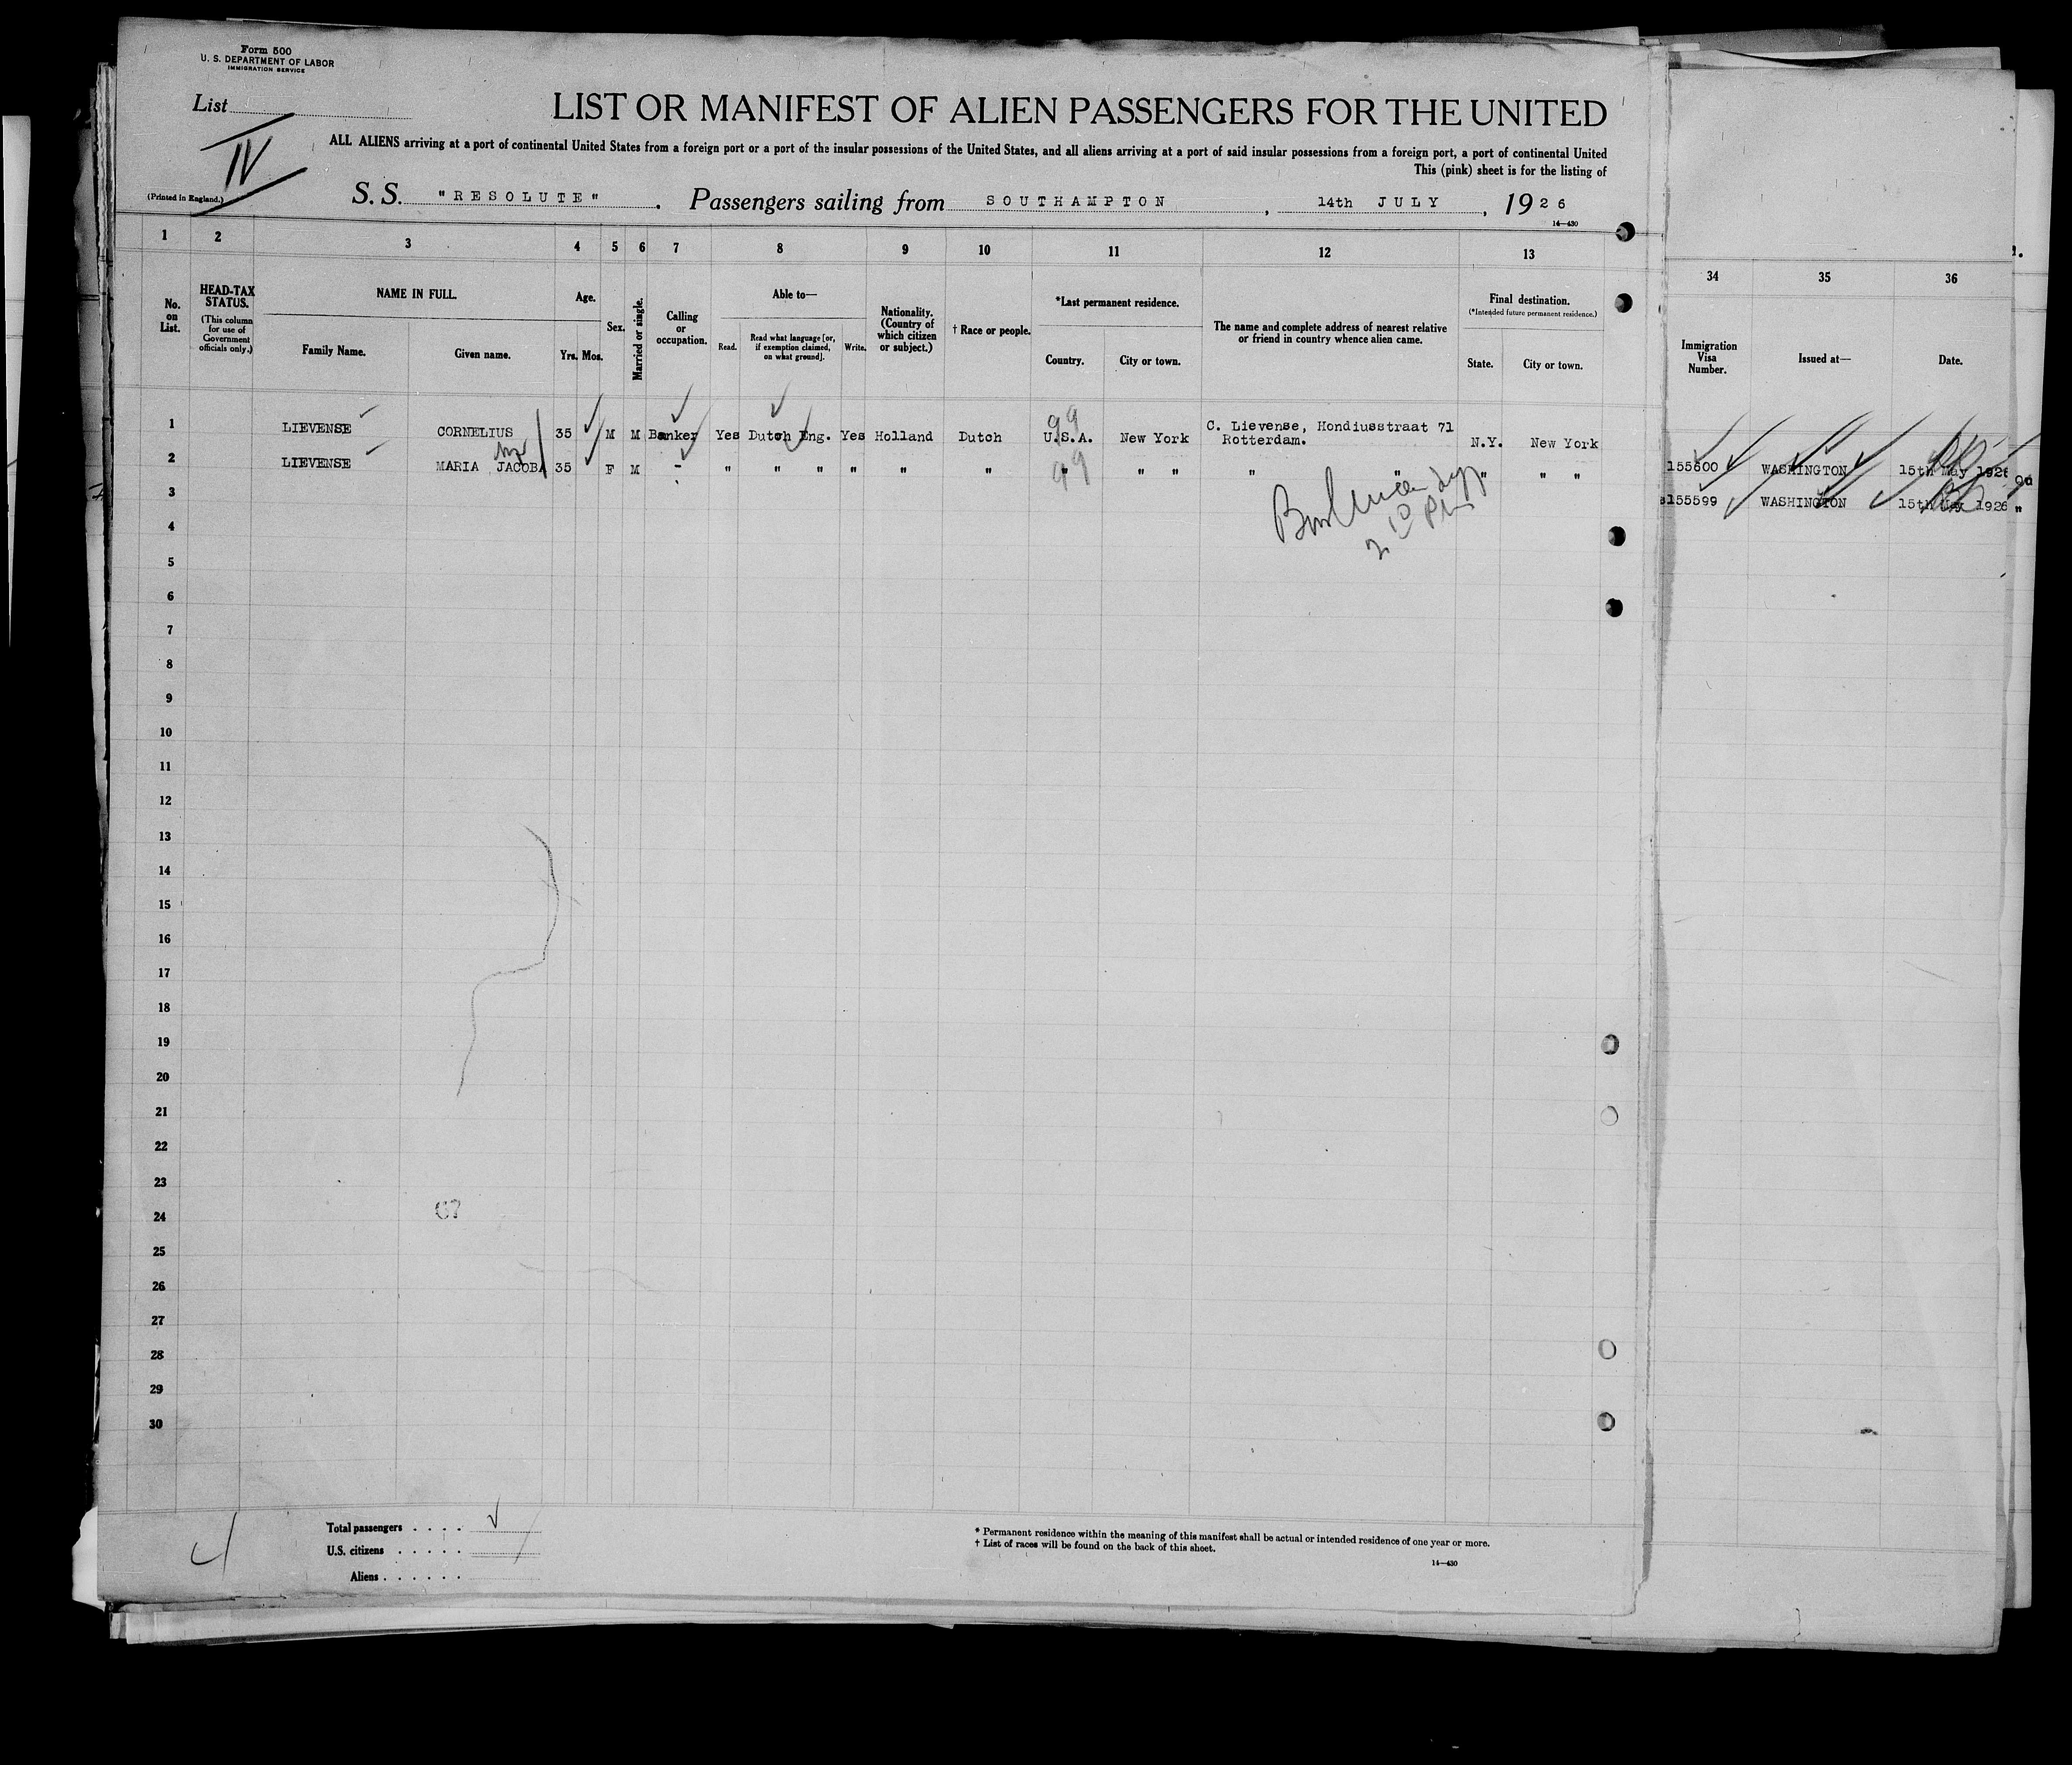 Form 500
U. S. DEPARTMENT OF LABOR
IMMIGRATION SERVICE
List
IV
(Printed in England.)
LIST OR MANIFEST OF ALIEN PASSENGERS FOR THE UNITED
ALL ALIENS arriving at a port of continental United States from a foreign port or a port of the insular possessions of the United States, and all aliens arriving at a port of said insular possessions from a foreign port, a port of continental United
This (pink) sheet is for the listing of
S. S. "RESOLUTE". Passengers sailing from SOUTHAMPTON, 14th JULY, 1926
14—430
1 2 3 4 5 6 7 8 9 10 11 12 13
No. on List.
HEAD-TAX STATUS.
(This column for use of Government officials only.)
NAME IN FULL.
Family Name.
Given name.
Age.
Yrs. Mos.
Sex.
Married or single.
Calling or occupation.
Able to—
Read.
Read what language [or, if exemption claimed, on what ground].
Write.
Nationality. (Country of which citizen or subject.)
† Race or people.
*Last permanent residence.
Country.
City or town.
The name and complete address of nearest relative or friend in country whence alien came.
Final destination.
(*Intended future permanent residence.)
State.
City or town.
34 35 36
Immigration Visa Number.
Issued at—
Date.
1 LIEVENSE CORNELIUS 35 M M Banker Yes Dutch Eng. Yes Holland Dutch U.S.A. New York C. Lievense, Hondiusstraat 71 Rotterdam. N.Y. New York
99
2 LIEVENSE MARIA JACOBA 35 F M - " " " " " " " " " " " " " "
99
155600 WASHINGTON 15th May 1926
155599 WASHINGTON 15th May 1926 "
3
4
5
6
7
8
9
10
11
12
13
14
15
16
17
18
19
20
21
22
23
24
67
25
26
27
28
29
30
Total passengers . . . .
U.S. citizens . . . . .
Aliens . . . . . .
* Permanent residence within the meaning of this manifest shall be actual or intended residence of one year or more.
† List of races will be found on the back of this sheet.
14—430